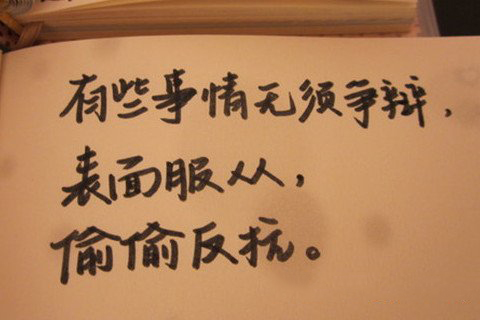 有些事情无须争辩，
表面服从，
偷偷反抗。